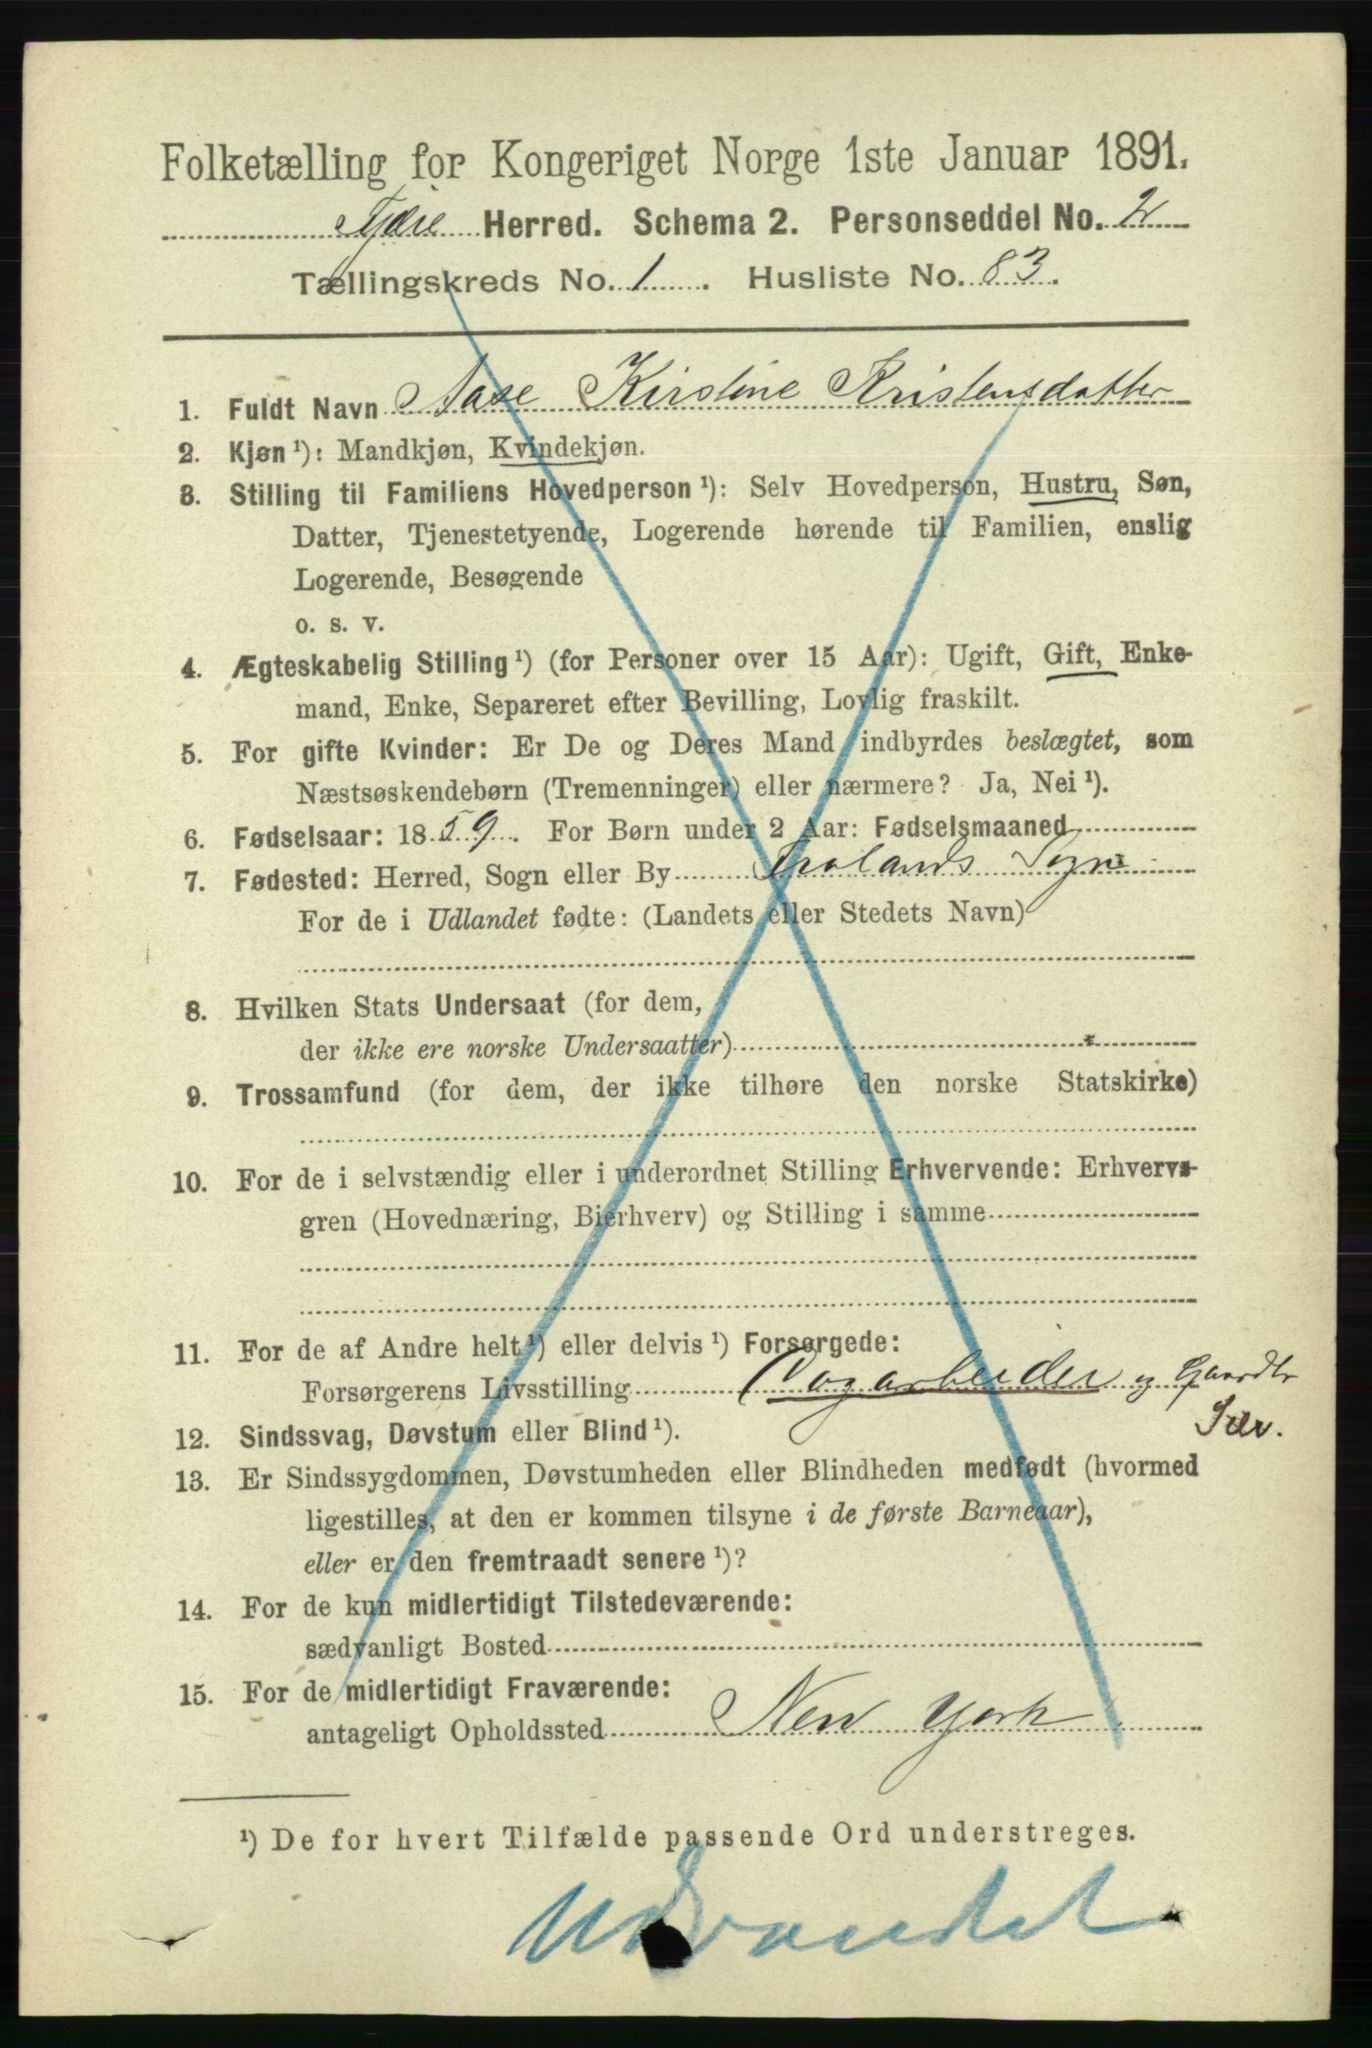 Folketælling for Kongeriget Norge 1ste Januar 1891.
Fjære Herred. Schema 2. Personseddel No. 2
Tællingskreds No. 1. Husliste No. 83.
1. Fuldt Navn Aase Kirstine Kristensdatter
2. Kjøn ¹): Mandkjøn, Kvindekjøn.
3. Stilling til Familiens Hovedperson ¹): Selv Hovedperson, Hustru, Søn,
Datter, Tjenestetyende, Logerende hørende til Familien, enslig
Logerende, Besøgende
o. s. v.
4. Ægteskabelig Stilling ¹) (for Personer over 15 Aar): Ugift, Gift, Enke-
mand, Enke, Separeret efter Bevilling, Lovlig fraskilt.
5. For gifte Kvinder: Er De og Deres Mand indbyrdes beslægtet, som
Næstsøskendebørn (Tremenninger) eller nærmere? Ja, Nei ¹).
6. Fødselsaar: 1859. For Børn under 2 Aar: Fødselsmaaned
7. Fødested: Herred, Sogn eller By Frolands Sogn
For de i Udlandet fødte: (Landets eller Stedets Navn)
8. Hvilken Stats Undersaat (for dem,
der ikke ere norske Undersaatter)
9. Trossamfund (for dem, der ikke tilhøre den norske Statskirke)
10. For de i selvstændig eller i underordnet Stilling Erhvervende: Erhvervs-
gren (Hovednæring, Bierhverv) og Stilling i samme
11. For de af Andre helt ¹) eller delvis ¹) Forsørgede:
Forsørgerens Livsstilling og Gaardbr
12. Sindssvag, Døvstum eller Blind ¹).
13. Er Sindssygdommen, Døvstumheden eller Blindheden medfødt (hvormed
ligestilles, at den er kommen tilsyne i de første Barneaar),
eller er den fremtraadt senere ¹)?
14. For de kun midlertidigt Tilstedeværende:
sædvanligt Bosted
15. For de midlertidigt Fraværende:
antageligt Opholdssted New York
¹) De for hvert Tilfælde passende Ord understreges.